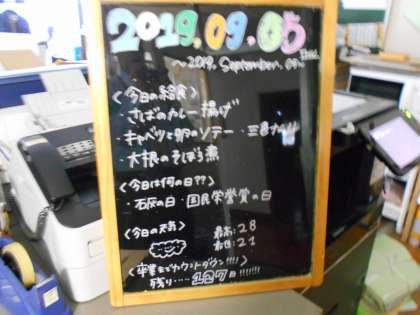 2019.09.05
～2019. September. 05～
＜今日の給食＞
・さばのカレー揚げ
・キャベツと卵のソテー
・大根のそぼろ煮
＜今日は何の日??＞
・石灰の日・国民栄誉賞の日
＜今日の天気＞
最高:28
最低:21
＜卒業までカウントダウン!!!!＞
残り・・・・127日!!!!!!